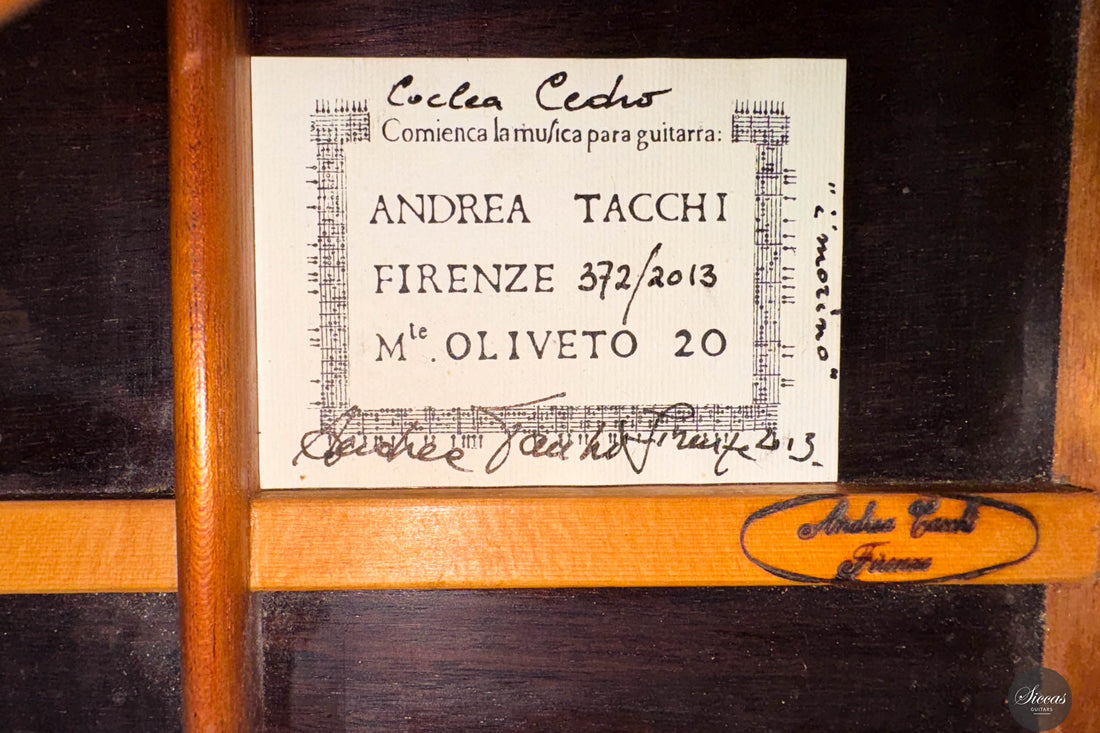 Coclea Cedro
Comienca la muſica para guitarra:
ANDREA TACCHI
FIRENZE 372/2013
Mte. OLIVETO 20
"i'morino"
Andrea Tacchi Firenze 2013.
Andrea Tacchi
Firenze
Siccas
GUITARS